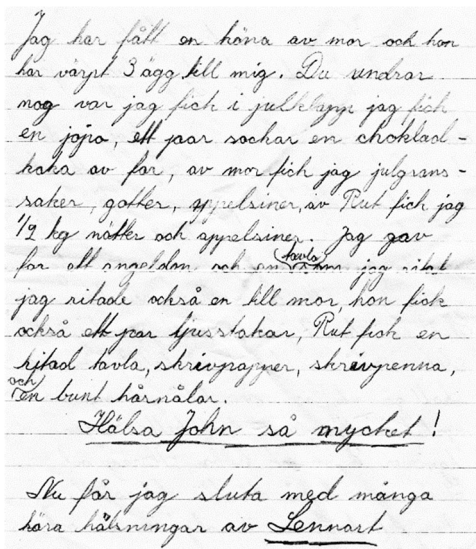 Jag har fått en höna av mor och hon
har värpt 3 ägg till mig. Du undrar
nog var jag fick i julklapp jag fick
en jojo, ett paar sockar en choklad-
kaka av far, av mor fick jag julgrans-
saker, gotter, appelsiner, av Rut fick jag
1/2 kg nötter och appelsiner. Jag gav
far ett och en tavla som jag ritat
jag ritade också en till mor, hon fick
också ett par ljusstakar, Rut fick en
ritad tavla, skrivpapper, skrivpenna,
och en bunt hårnålar.
Hälsa John så mycket!
Nu får jag sluta med många
kära hälsningar av Lennart